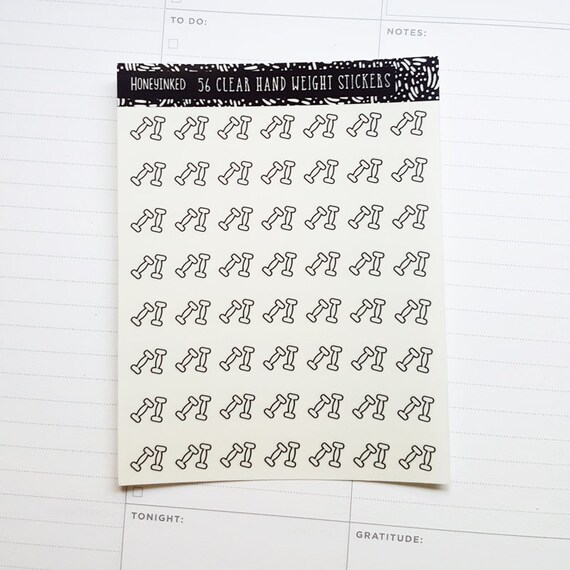 TO DO:
NOTES:
HONEYINKED 56 CLEAR HAND WEIGHT STICKERS
TONIGHT:
GRATITUDE: